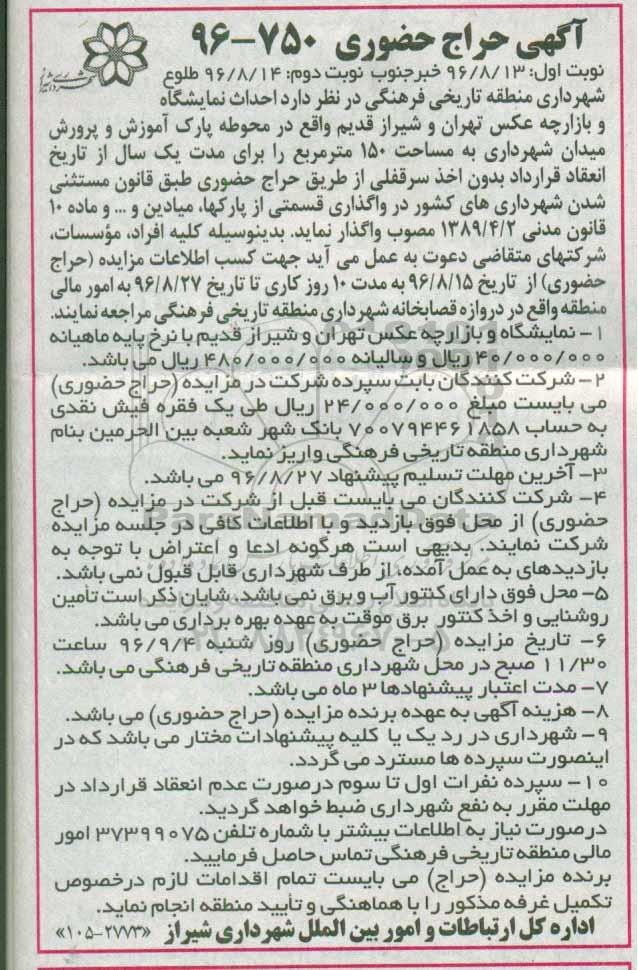 آگهی حراج حضوری ۷۵۰-۹۶
نوبت اول: ۹۶/۸/۱۳ خبرجنوب نوبت دوم: ۹۶/۸/۱۴ طلوع
شهرداری منطقه تاریخی فرهنگی در نظر دارد احداث نمایشگاه
و بازارچه عکس تهران و شیراز قدیم واقع در محوطه پارک آموزش و پرورش
میدان شهرداری به مساحت ۱۵۰ مترمربع را برای مدت یک سال از تاریخ
انعقاد قرارداد بدون اخذ سرقفلی از طریق حراج حضوری طبق قانون مستثنی
شدن شهرداری های کشور در واگذاری قسمتی از پارکها، میادین و ... و ماده ۱۰
قانون مدنی ۱۳۸۹/۴/۲ مصوب واگذار نماید. بدینوسیله کلیه افراد، مؤسسات،
شرکتهای متقاضی دعوت به عمل می آید جهت کسب اطلاعات مزایده (حراج
حضوری) از تاریخ ۹۶/۸/۱۵ به مدت ۱۰ روز کاری تا تاریخ ۹۶/۸/۲۷ به امور مالی
منطقه واقع در دروازه قصابخانه شهرداری منطقه تاریخی فرهنگی مراجعه نمایند.
۱- نمایشگاه و بازارچه عکس تهران و شیراز قدیم با نرخ پایه ماهیانه
۴۰/۰۰۰/۰۰۰ ریال و سالیانه ۴۸۰/۰۰۰/۰۰۰ ریال می باشد.
۲- شرکت کنندگان بابت سپرده شرکت در مزایده (حراج حضوری)
می بایست مبلغ ۲۴/۰۰۰/۰۰۰ ریال طی یک فقره فیش نقدی
به حساب ۷۰۰۷۹۴۴۶۱۸۵۸ بانک شهر شعبه بین الحرمین بنام
شهرداری منطقه تاریخی فرهنگی واریز نماید.
۳- آخرین مهلت تسلیم پیشنهاد ۹۶/۸/۲۷ می باشد.
۴- شرکت کنندگان می بایست قبل از شرکت در مزایده (حراج
حضوری) از محل فوق بازدید و با اطلاعات کافی در جلسه مزایده
شرکت نمایند. بدیهی است هرگونه ادعا و اعتراض با توجه به
بازدیدهای به عمل آمده، از طرف شهرداری قابل قبول نمی باشد.
۵- محل فوق دارای کنتور آب و برق نمی باشد، شایان ذکر است تأمین
روشنایی و اخذ کنتور برق موقت به عهده بهره برداری می باشد.
۶- تاریخ مزایده (حراج حضوری) روز شنبه ۹۶/۹/۴ ساعت
۱۱/۳۰ صبح در محل شهرداری منطقه تاریخی فرهنگی می باشد.
۷- مدت اعتبار پیشنهادها ۳ ماه می باشد.
۸- هزینه آگهی به عهده برنده مزایده (حراج حضوری) می باشد.
۹- شهرداری در رد یک یا کلیه پیشنهادات مختار می باشد که در
اینصورت سپرده ها مسترد می گردد.
۱۰- سپرده نفرات اول تا سوم درصورت عدم انعقاد قرارداد در
مهلت مقرر به نفع شهرداری ضبط خواهد گردید.
درصورت نیاز به اطلاعات بیشتر با شماره تلفن ۳۷۳۹۹۰۷۵ امور
مالی منطقه تاریخی فرهنگی تماس حاصل فرمایید.
برنده مزایده (حراج) می بایست تمام اقدامات لازم درخصوص
تکمیل غرفه مذکور را با هماهنگی و تأیید منطقه انجام نماید.
اداره کل ارتباطات و امور بین الملل شهرداری شیراز «۲۷۷۳-۱۰۵»